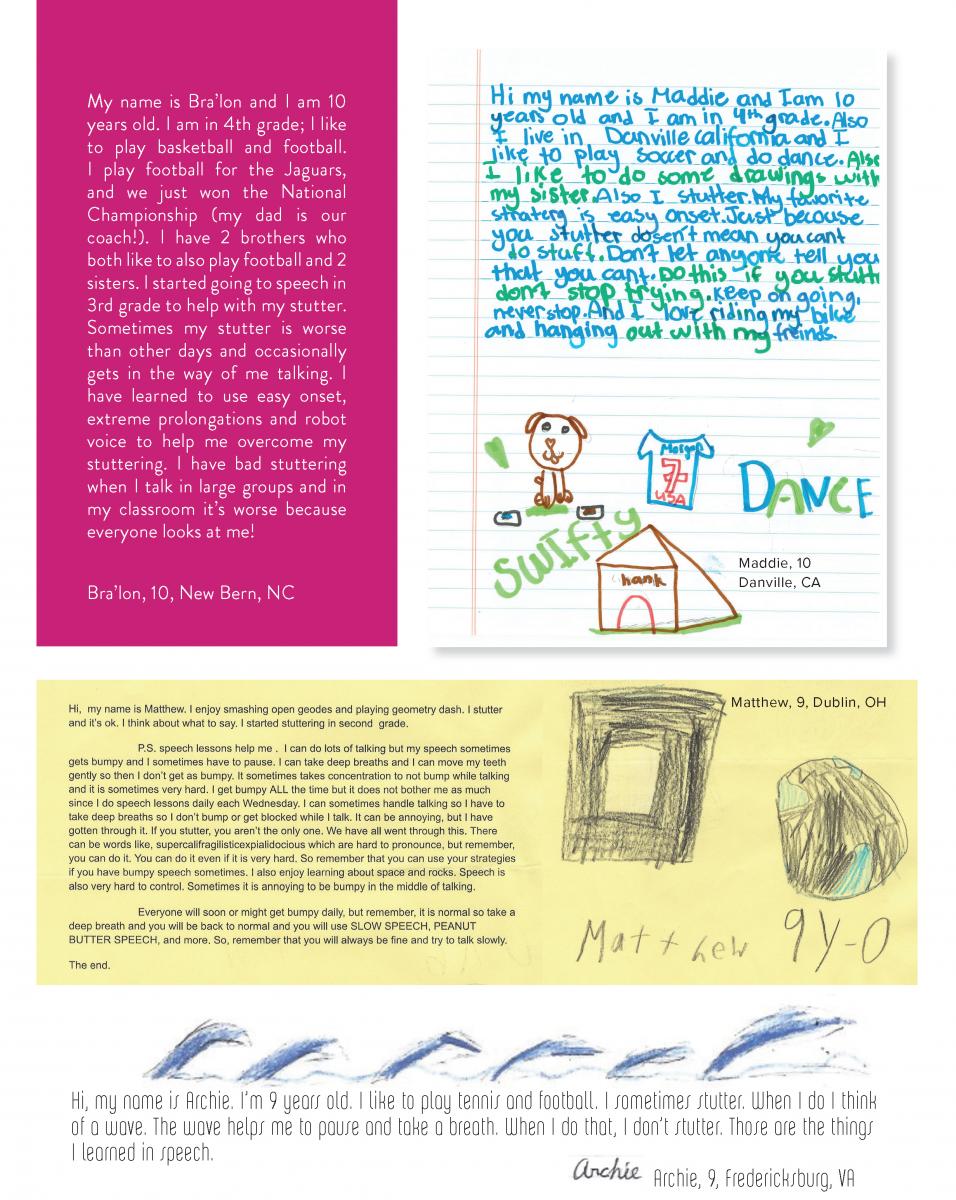 My name is Bra'lon and I am 10
years old. I am in 4th grade; I like
to play basketball and football.
I play football for the Jaguars,
and we just won the National
Championship (my dad is our
coach!). I have 2 brothers who
both like to also play football and 2
sisters. I started going to speech in
3rd grade to help with my stutter.
Sometimes my stutter is worse
than other days and occasionally
gets in the way of me talking. I
have learned to use easy onset,
extreme prolongations and robot
voice to help me overcome my
stuttering. I have bad stuttering
when I talk in large groups and in
my classroom it's worse because
everyone looks at me!
Bra'lon, 10, New Bern, NC
Hi my name is Maddie and I am 10
years old and I am in 4th grade. Also
I live in Danville california and I
like to play soccer and do dance. Also
I like to do some drawings with
my sister. Also I stutter. My favorite
stratery is easy onset. Just because
you stutter dosen't mean you cant
do stuff. Don't let anyone tell you
that you cant. Do this if you stutt
don't stop trying. Keep on going,
never stop. And I love riding my bike
and hanging out with my freinds.
7
USA
DANCE
Swifty
hank
Maddie, 10
Danville, CA
Hi, my name is Matthew. I enjoy smashing open geodes and playing geometry dash. I stutter
and it's ok. I think about what to say. I started stuttering in second grade.
P.S. speech lessons help me . I can do lots of talking but my speech sometimes
gets bumpy and I sometimes have to pause. I can take deep breaths and I can move my teeth
gently so then I don't get as bumpy. It sometimes takes concentration to not bump while talking
and it is sometimes very hard. I get bumpy ALL the time but it does not bother me as much
since I do speech lessons daily each Wednesday. I can sometimes handle talking so I have to
take deep breaths so I don't bump or get blocked while I talk. It can be annoying, but I have
gotten through it. If you stutter, you aren't the only one. We have all went through this. There
can be words like, supercalifragilisticexpialidocious which are hard to pronounce, but remember,
you can do it. You can do it even if it is very hard. So remember that you can use your strategies
if you have bumpy speech sometimes. I also enjoy learning about space and rocks. Speech is
also very hard to control. Sometimes it is annoying to be bumpy in the middle of talking.
Everyone will soon or might get bumpy daily, but remember, it is normal so take a
deep breath and you will be back to normal and you will use SLOW SPEECH, PEANUT
BUTTER SPEECH, and more. So, remember that you will always be fine and try to talk slowly.
The end.
Matthew, 9, Dublin, OH
Matthew 9Y-O
Hi, my name is Archie. I'm 9 years old. I like to play tennis and football. I sometimes stutter. When I do I think
of a wave. The wave helps me to pause and take a breath. When I do that, I don't stutter. Those are the things
I learned in speech.
Archie
Archie, 9, Fredericksburg, VA